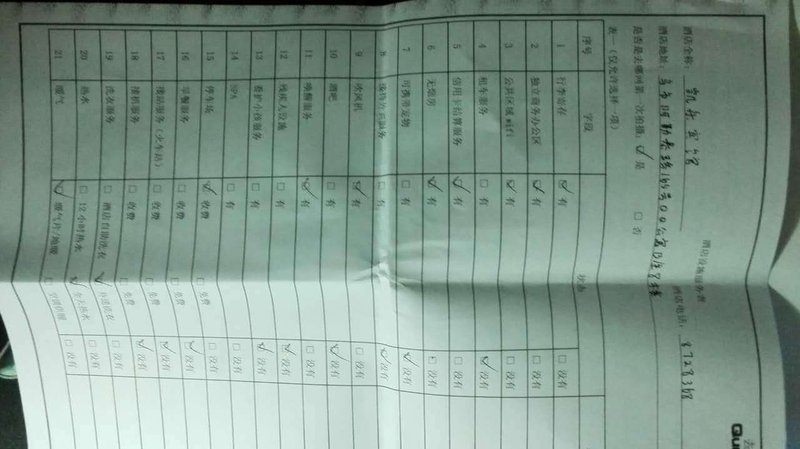 Qu
酒店设施服务表
酒店全称： 宾馆 酒店电话： 8728368
酒店地址： 乌市阿勒泰路165号QQ公寓B座8楼
是否是去哪网第一次拍摄： ✓ 是 □ 否
表一（仅允许选择一项）
序号 字段 状态
1 行李寄存 ✓ 有 □ 没有
2 独立商务办公区 ✓ 有 □ 没有
3 公共区域wifi ✓ 有 □ 没有
4 租车服务 □ 有 ✓ 没有
5 信用卡结算服务 ✓ 有 □ 没有
6 无烟房 ✓ 有 □ 没有
7 可携带宠物 □ 有 ✓ 没有
8 服务 □ 有 ✓ 没有
9 吹风机 ✓ 有 □ 没有
10 酒吧 □ 有 ✓ 没有
11 唤醒服务 ✓ 有 □ 没有
12 残疾人设施 □ 有 ✓ 没有
13 看护小孩服务 □ 有 ✓ 没有
14 SPA □ 有 □ 没有
15 停车场 ✓ 收费 □ 免费 □ 没有
16 早餐服务 □ 收费 □ 免费 ✓ 没有
17 接站服务（火车站） □ 收费 □ 免费 ✓ 没有
18 接机服务 □ 收费 □ 免费 ✓ 没有
19 洗衣服务 □ 酒店自助洗衣 ✓ 外送洗衣 □ 没有
20 热水 □ 12小时热水 ✓ 全天热水 □ 没有
21 暖气 ✓ 暖气片/地暖 □ 空调供暖 □ 没有